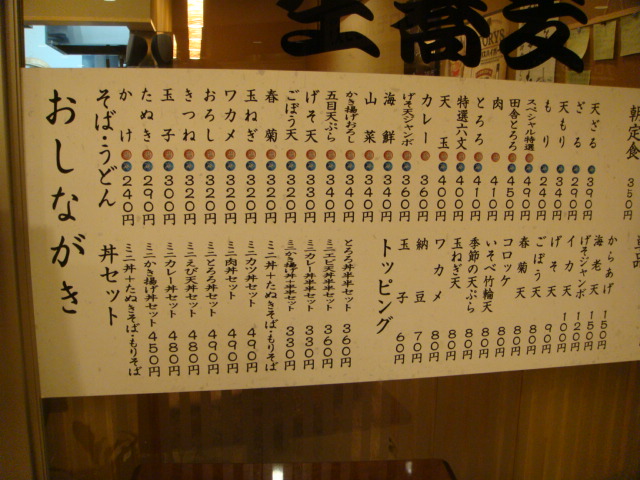 生蕎麦
おしながき
そば・うどん
かけ 240円
たぬき 290円
玉子 300円
きつね 320円
おろし 320円
ワカメ 320円
玉ねぎ 320円
春菊 320円
ごぼう天 320円
げそ天 330円
五目天ぷら 340円
かき揚げおろし 340円
山菜 340円
海鮮 340円
げそ天ジャンボ 360円
カレー 360円
天玉 400円
特選六文 400円
とろろ 410円
肉 410円
田舎とろろ 450円
スペシャル特選 490円
もり 240円
天もり 340円
ざる 290円
天ざる 390円
朝定食 350円
丼セット
ミニ丼+たぬきそば・もりそば
ミニかき揚げ丼セット 450円
ミニカレー丼セット 480円
ミニえび天丼セット 480円
ミニとろろ丼セット 490円
ミニ肉丼セット 490円
ミニカツ丼セット 490円
ミニ丼+たぬきそば・もりそば
ミニかき揚げ丼半半セット 330円
ミニカレー丼半半セット 330円
ミニエビ天丼半半セット 360円
とろろ丼半半セット 360円
トッピング
玉子 60円
納豆 70円
ワカメ 80円
玉ねぎ天 80円
季節の天ぷら 80円
いそべ竹輪天 80円
コロッケ 80円
春菊天 80円
ごぼう天 80円
げそ天 90円
イカ天 100円
げそジャンボ 120円
海老天 150円
からあげ 150円